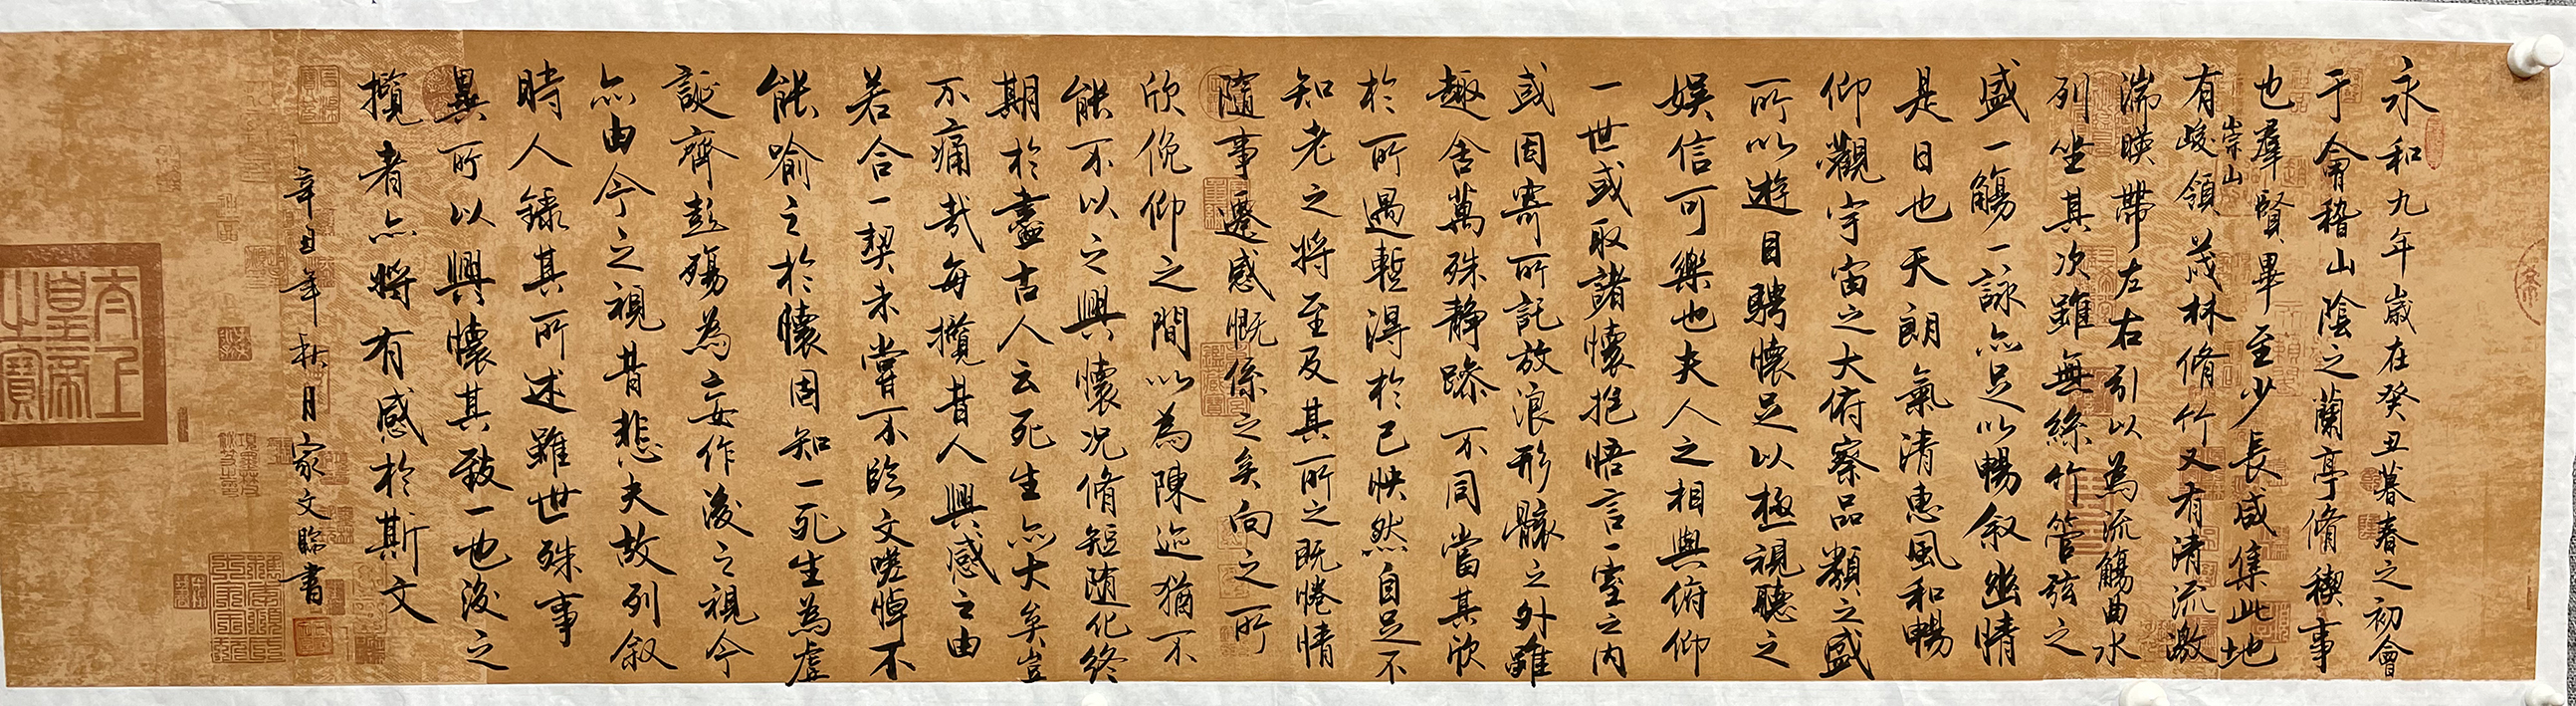 永和九年歲在癸丑暮春之初會
于會稽山陰之蘭亭脩稧事
也羣賢畢至少長咸集此地
有崇山峻領茂林脩竹又有清流激
湍暎帶左右引以為流觴曲水
列坐其次雖無絲竹管弦之
盛一觴一詠亦足以暢叙幽情
是日也天朗氣清惠風和暢
仰觀宇宙之大俯察品類之盛
所以遊目騁懷足以極視聽之
娛信可樂也夫人之相與俯仰
一世或取諸懷抱悟言一室之內
或因寄所託放浪形骸之外雖
趣舍萬殊静躁不同當其欣
於所遇暫得於己怏然自足不
知老之將至及其所之既惓情
隨事遷感慨係之矣向之所
欣俛仰之間以為陳迹猶不
能不以之興懷況脩短隨化終
期於盡古人云死生亦大矣豈
不痛哉每攬昔人興感之由
若合一契未嘗不臨文嗟悼不
能喻之於懷固知一死生為虛
誕齊彭殤為妄作後之視今
亦由今之視昔悲夫故列叙
時人錄其所述雖世殊事
異所以興懷其致一也後之
攬者亦將有感於斯文
辛丑年秋月家文臨書
太上皇帝之寶